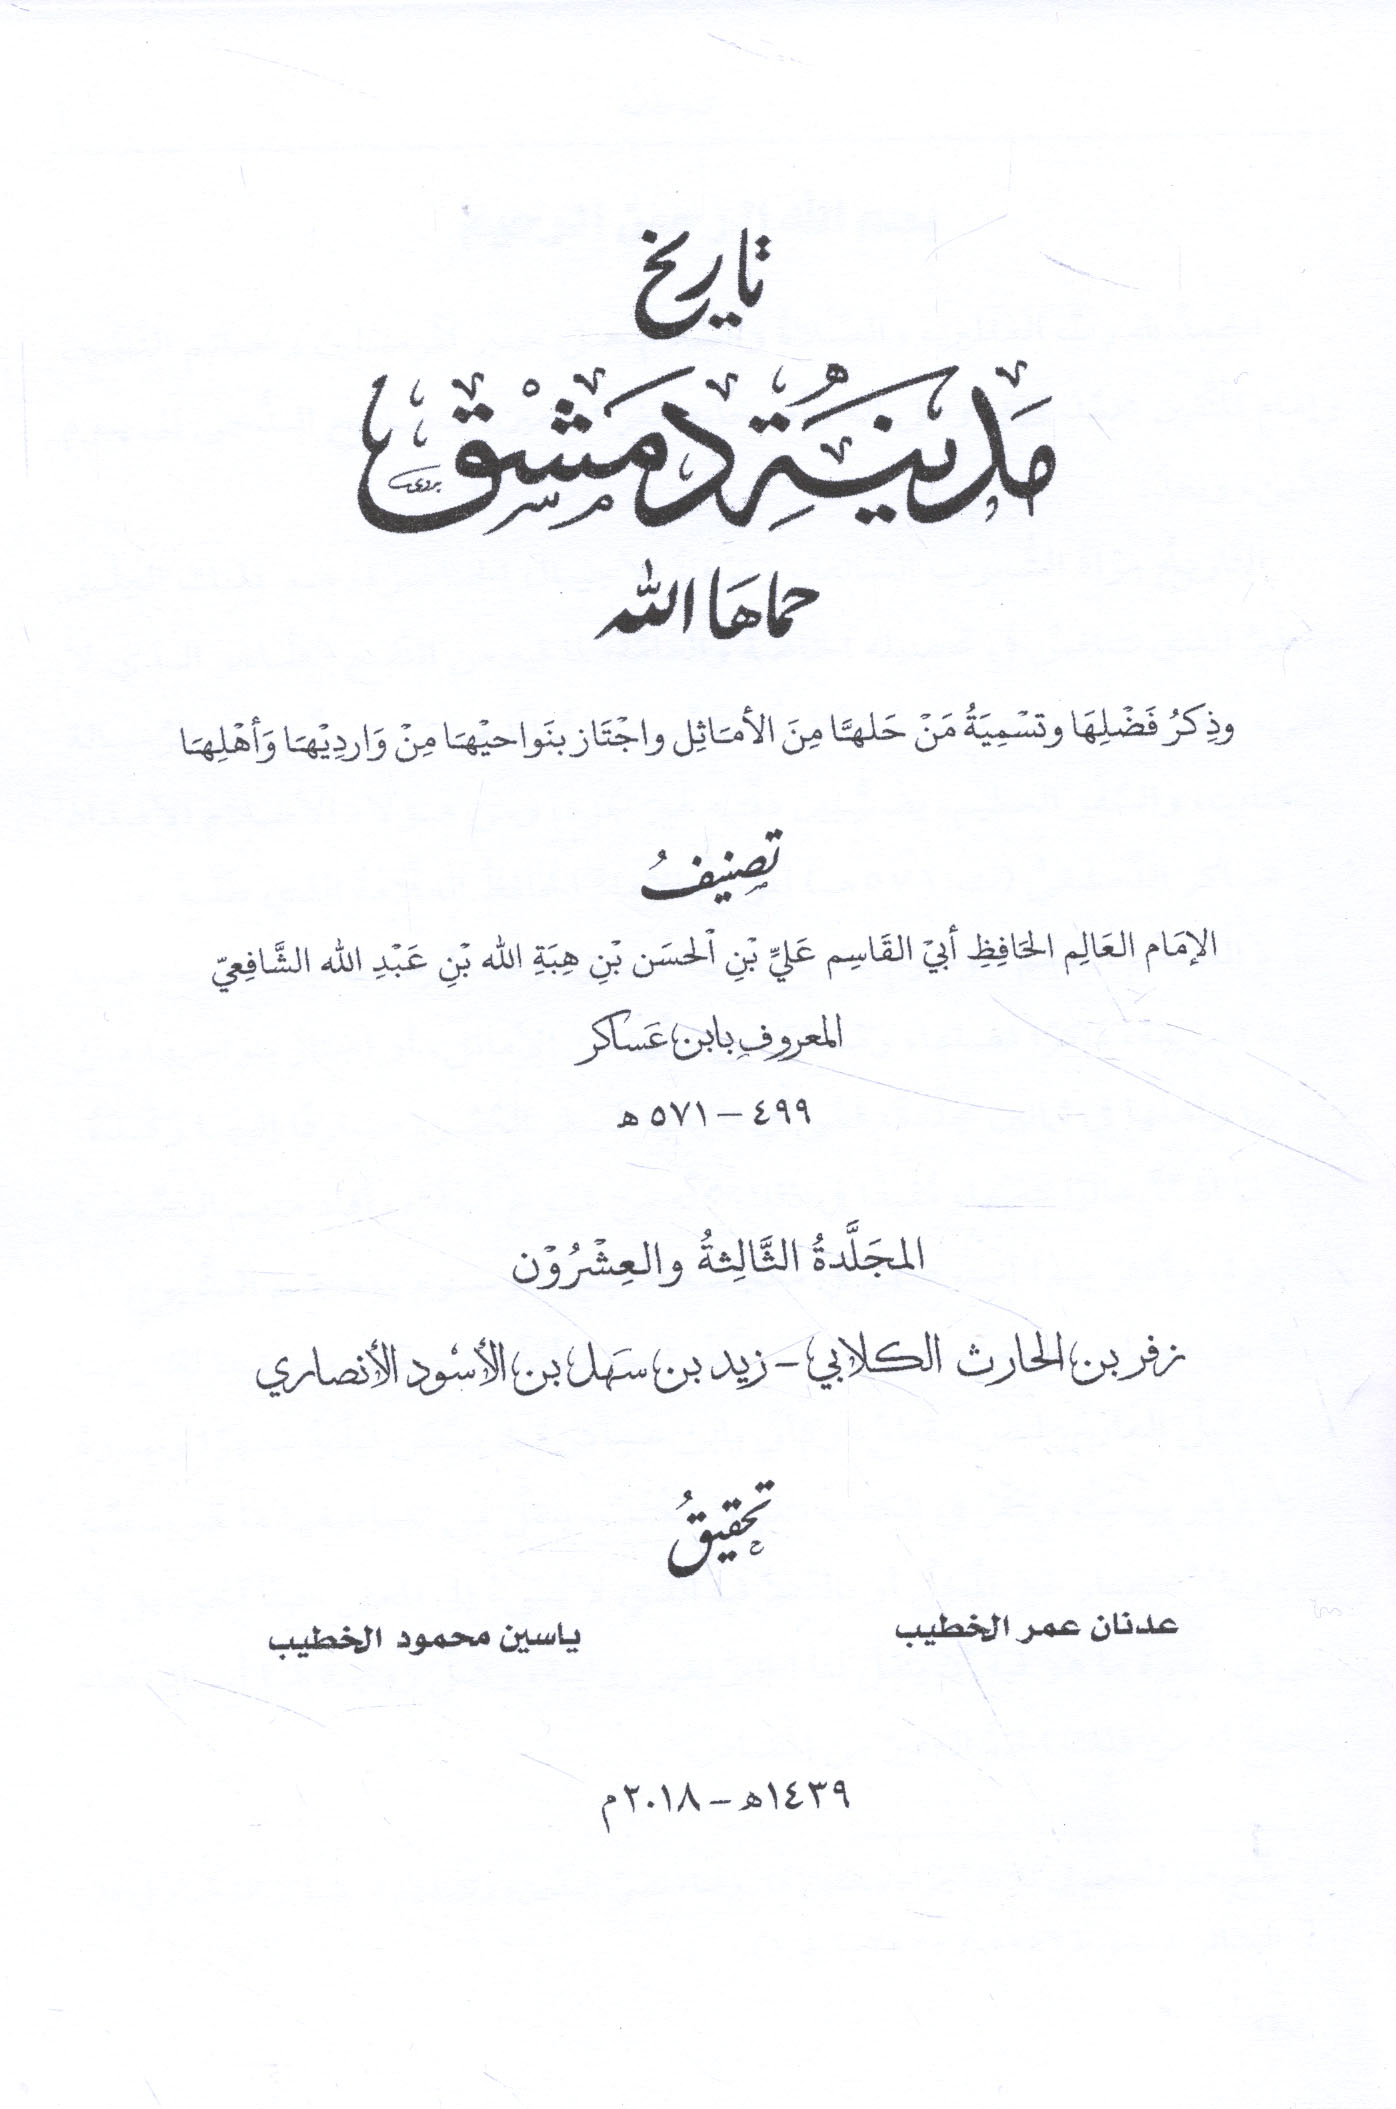 تاريخ
مَدينَةِ دمَشْق
حماهَا الله
وذِكرُ فَضْلِهَا وتسْمِيَةُ مَنْ حَلهَّا مِنَ الأمَاثِل واجْتَاز بنَواحيْهَا مِنْ وَارِدِيْهَا وَأهْلِهَا
تصنيفُ
الإمَام العَالِم الحَافِظِ أبيْ القَاسِم عَليِّ بْنِ الْحسَن بْنِ هِبَةِ الله بْنِ عَبْدِ الله الشَّافِعيّ
المعروفِ بابن عَساكر
٤٩٩ - ٥٧١ هـ
المجَلَّدةُ الثَّالِثةُ والعِشْرُوْن
زفر بن الحارث الكلابي - زيد بن سَهل بن الأسْود الأنصاري
تحقيقُ
عدنان عمر الخطيب ياسين محمود الخطيب
١٤٣٩هـ - ٢٠١٨م